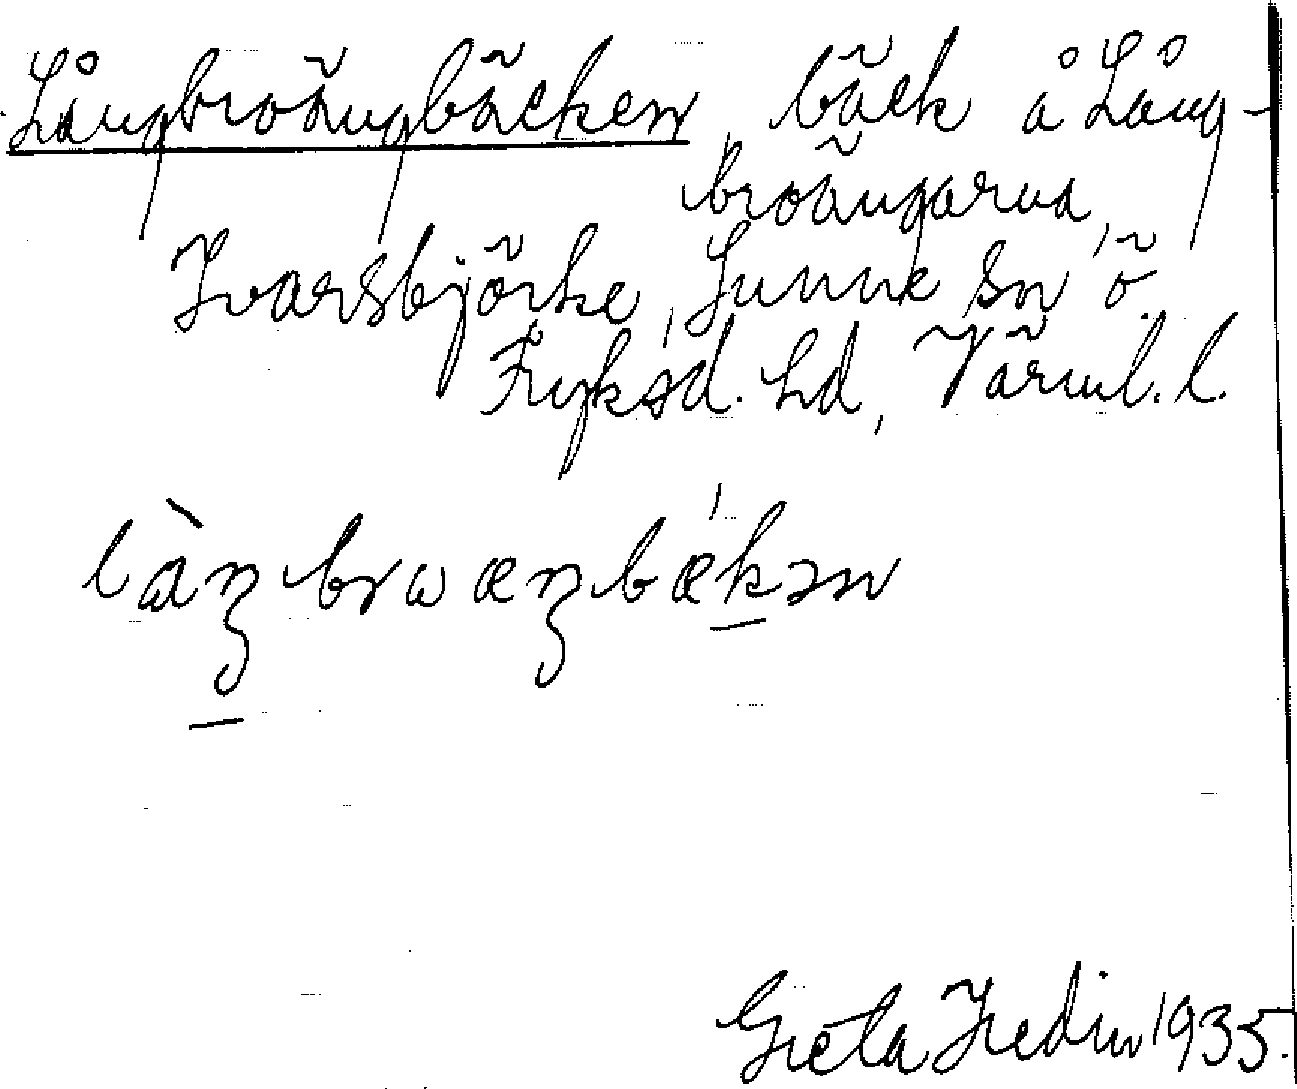 Långbroängbäcken, bäck å Lång-
broängarna,
Ivarsbjörke, Sunne sn ö.
Fryksd. hd, Värml. l.
là̱ŋbrωæŋbǽḵən
Greta Hedin 1935.